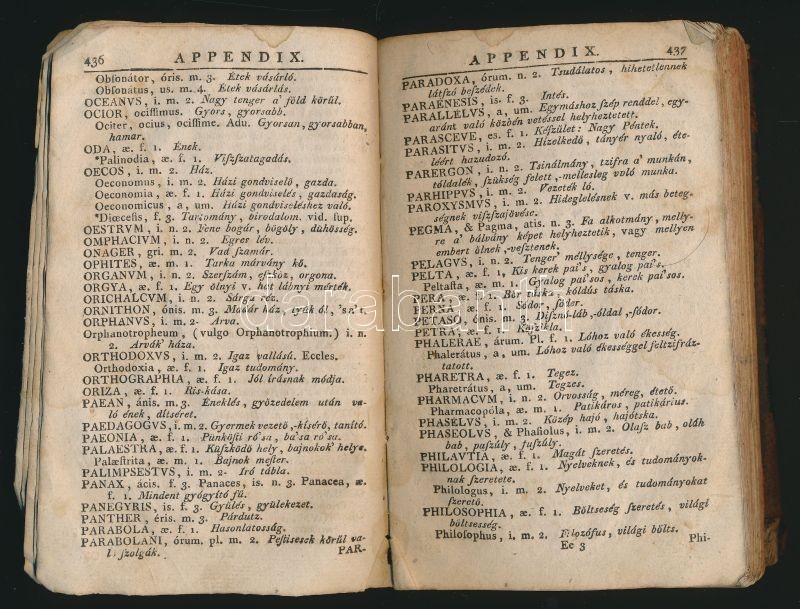 436 APPENDIX.
Obſonátor, óris. m. 3. Étek váſárló.
Obſonátus, us. m. 4. Étek váſárlás.
OCEANVS, i. m. 2. Nagy tenger a' föld körűl.
OCIOR, ociſſimus. Gyors, gyorsabb.
Ociter, ocius, ociſſime. Adu. Gyorsan, gyorsabban,
hamar.
ODA, æ. f. 1. Ének.
*Palinodia, æ. f. 1. Viſzſzatagadás.
OECOS, i. m. 2. Ház.
Oeconomus, i. m. 2. Házi gondviselő, gazda.
Oeconomia, æ. f. 1. Házi gondviselés, gazdaság.
Oeconomicus, a, um. Házi gondviseléshez való.
*Diœceſis, f. 3. Tartomány, birodalom. vid. ſup.
OESTRVM, i. n. 2. Fene bogár, bögöly, dühösség.
OMPHACIVM, i. n. 2. Egres lév.
ONAGER, gri. m. 2. Vad ſzamár.
OPHITES, æ. m. 1. Tarka márvány kő.
ORGANVM, i. n. 2. Szerſzám, eſzköz, orgona.
ORGYA, æ. f. 1. Egy ölnyi v. hat lábnyi mérték.
ORICHALCVM, i. n. 2. Sárga réz.
ORNITHON, ónis. m. 3. Madár ház, tyúk ól, 's a' t.
ORPHANVS, i. m. 2. Árva.
Orphanotropheum, (vulgo Orphanotrophium.) i. n.
2. Árvák' háza.
ORTHODOXVS, i. m. 2. Igaz vallású. Eccles.
Orthodoxia, æ. f. 1. Igaz tudomány.
ORTHOGRAPHIA, æ. f. 1. Jól írásnak módja.
ORIZA, æ. f. 1. Ris-kása.
PAEAN, ánis. m. 3. Éneklés, győzedelem után va-
ló ének, ditséret.
PAEDAGOGVS, i. m. 2. Gyermek vezető, -kísérő, tanító.
PAEONIA, æ. f. 1. Pünköſti ró'sa, ba'sa ró'sa.
PALAESTRA, æ. f. 1. Küſzködő hely, bajnokok' helye.
Palæſtrita, æ. m. 1. Bajnok meſter.
PALIMPSESTVS, i. m. 2. Író tábla.
PANAX, ácis. f. 3. Panaces, is. n. 3. Panacea, æ.
f. 1. Mindent gyógyító fű.
PANEGYRIS, is. f. 3. Gyűlés, gyülekezet.
PANTHER, éris. m. 3. Párdutz.
PARABOLA, æ. f. 1. Hasonlatosság.
PARABOLANI, órum. pl. m. 2. Peſtisesek körűl va-
ló ſzolgák.
PAR-
APPENDIX. 437
PARADOXA, órum. n. 2. Tsudálatos, hihetetlennek
látſzó beſzédek.
PARAENESIS, is. f. 3. Intés.
PARALLELVS, a, um. Egymáshoz ſzép renddel, egy-
aránt való közben vetéssel helyheztetett.
PARASCEVE, es. f. 1. Kéſzület: Nagy Péntek.
PARASITVS, i. m. 2. Hízelkedő, tányér nyaló, éte-
léért hazudozó.
PARERGON, i. n. 2. Tsinálmány, tzifra a' munkán,
tóldalék, ſzükség felett, -mellesleg való munka.
PARHIPPVS, i. m. 2. Vezeték ló.
PAROXYSMVS, i. m. 2. Hideglelésnek v. más beteg-
ségnek viſzſzajövése.
PEGMA, & Pagma, atis. n. 3. Fa alkotmány, melly-
re a' bálvány képet helyheztetik, vagy mellyen
embert ölnek, -veſztenek.
PELAGVS, i. n. 2. Tenger' mélysége, tenger.
PELTA, æ. f. 1. Kis kerek pai's, gyalog pai's.
Peltaſta, æ. m. 1. Gyalog pai'sos, kerek pai'sos.
PERA, æ. f. 1. Bőr táska, kóldús táska.
PERNA, æ. f. 1. Sódor, ſóder.
PETASO, ónis. m. 3. Diſznó-láb, -óldal, -ſódor.
PETRA, æ. f. 1. Kőſzikla.
PHALERAE, árum. Pl. f. 1. Lóhoz való ékesség.
Phalerátus, a, um. Lóhoz való ékességgel feltzifráz-
tatott.
PHARETRA, æ. f. 1. Tegez.
Pharetrátus, a, um. Tegzes.
PHARMACVM, i. n. 2. Orvosság, méreg, étető.
Pharmacopóla, æ. m. 1. Patikáros, patikárius.
PHASELVS, i. m. 2. Közép hajó, hajótska.
PHASEOLVS, & Phaſiolus, i. m. 2. Olaſz bab, oláh
bab, paſzúly, fuſzúly.
PHILAVTIA, æ. f. 1. Magát ſzeretés.
PHILOLOGIA, æ. f. 1. Nyelveknek, és tudományok-
nak ſzeretete.
Philologus, i. m. 2. Nyelveket, és tudományokat
ſzerető.
PHILOSOPHIA, æ. f. 1. Böltseség ſzeretés, világi
böltsesség.
Philoſophus, i. m. 2. Filozófus, világi bölts.
Ee 3 Phi-
darabanth